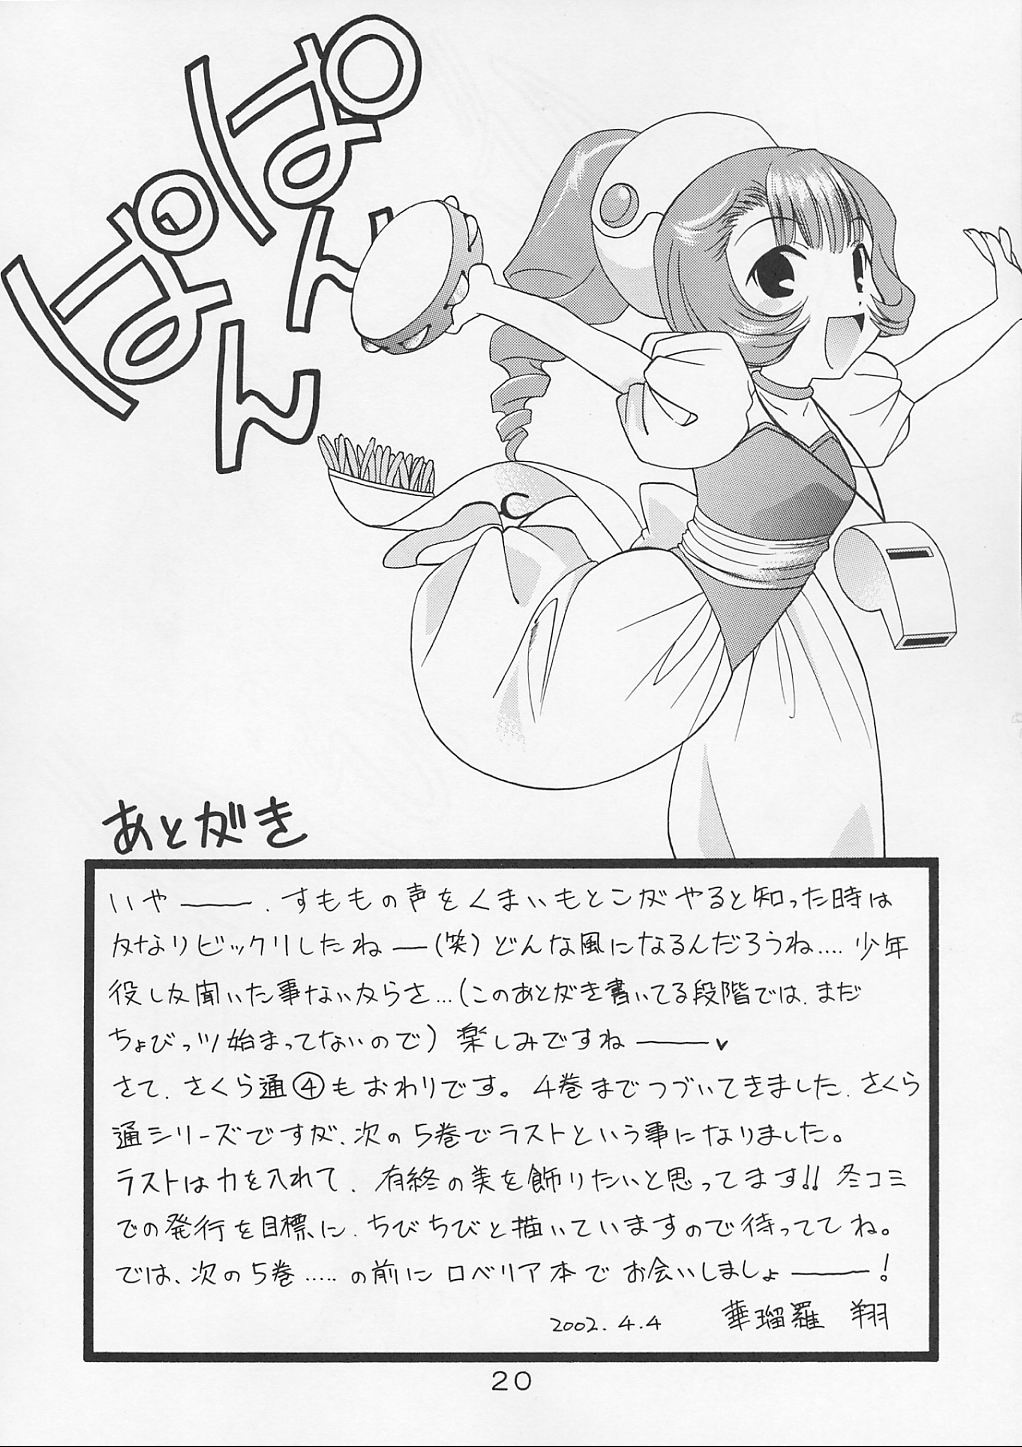 ぱんぱん
あとがき
いやー、すももの声をくまいもとこがやると知った時は
かなりビックリしたねー(笑)どんな風になるんだろうね‥‥少年
役しか聞いた事ないからさ…(このあとがき書いてる段階では、まだ
ちょびっツ始まってないので)楽しみですねー♥
さて、さくら通④もおわりです。4巻までつづいてきました、さくら
通シリーズですが、次の5巻でラストという事になりました。
ラストは力を入れて、有終の美を飾りたいと思ってます!!冬コミ
での発行を目標に、ちびちびと描いていますので待っててね。
では、次の5巻‥‥‥の前にロベリア本でお会いしましょー!
2002.4.4 華瑠羅 翔
20